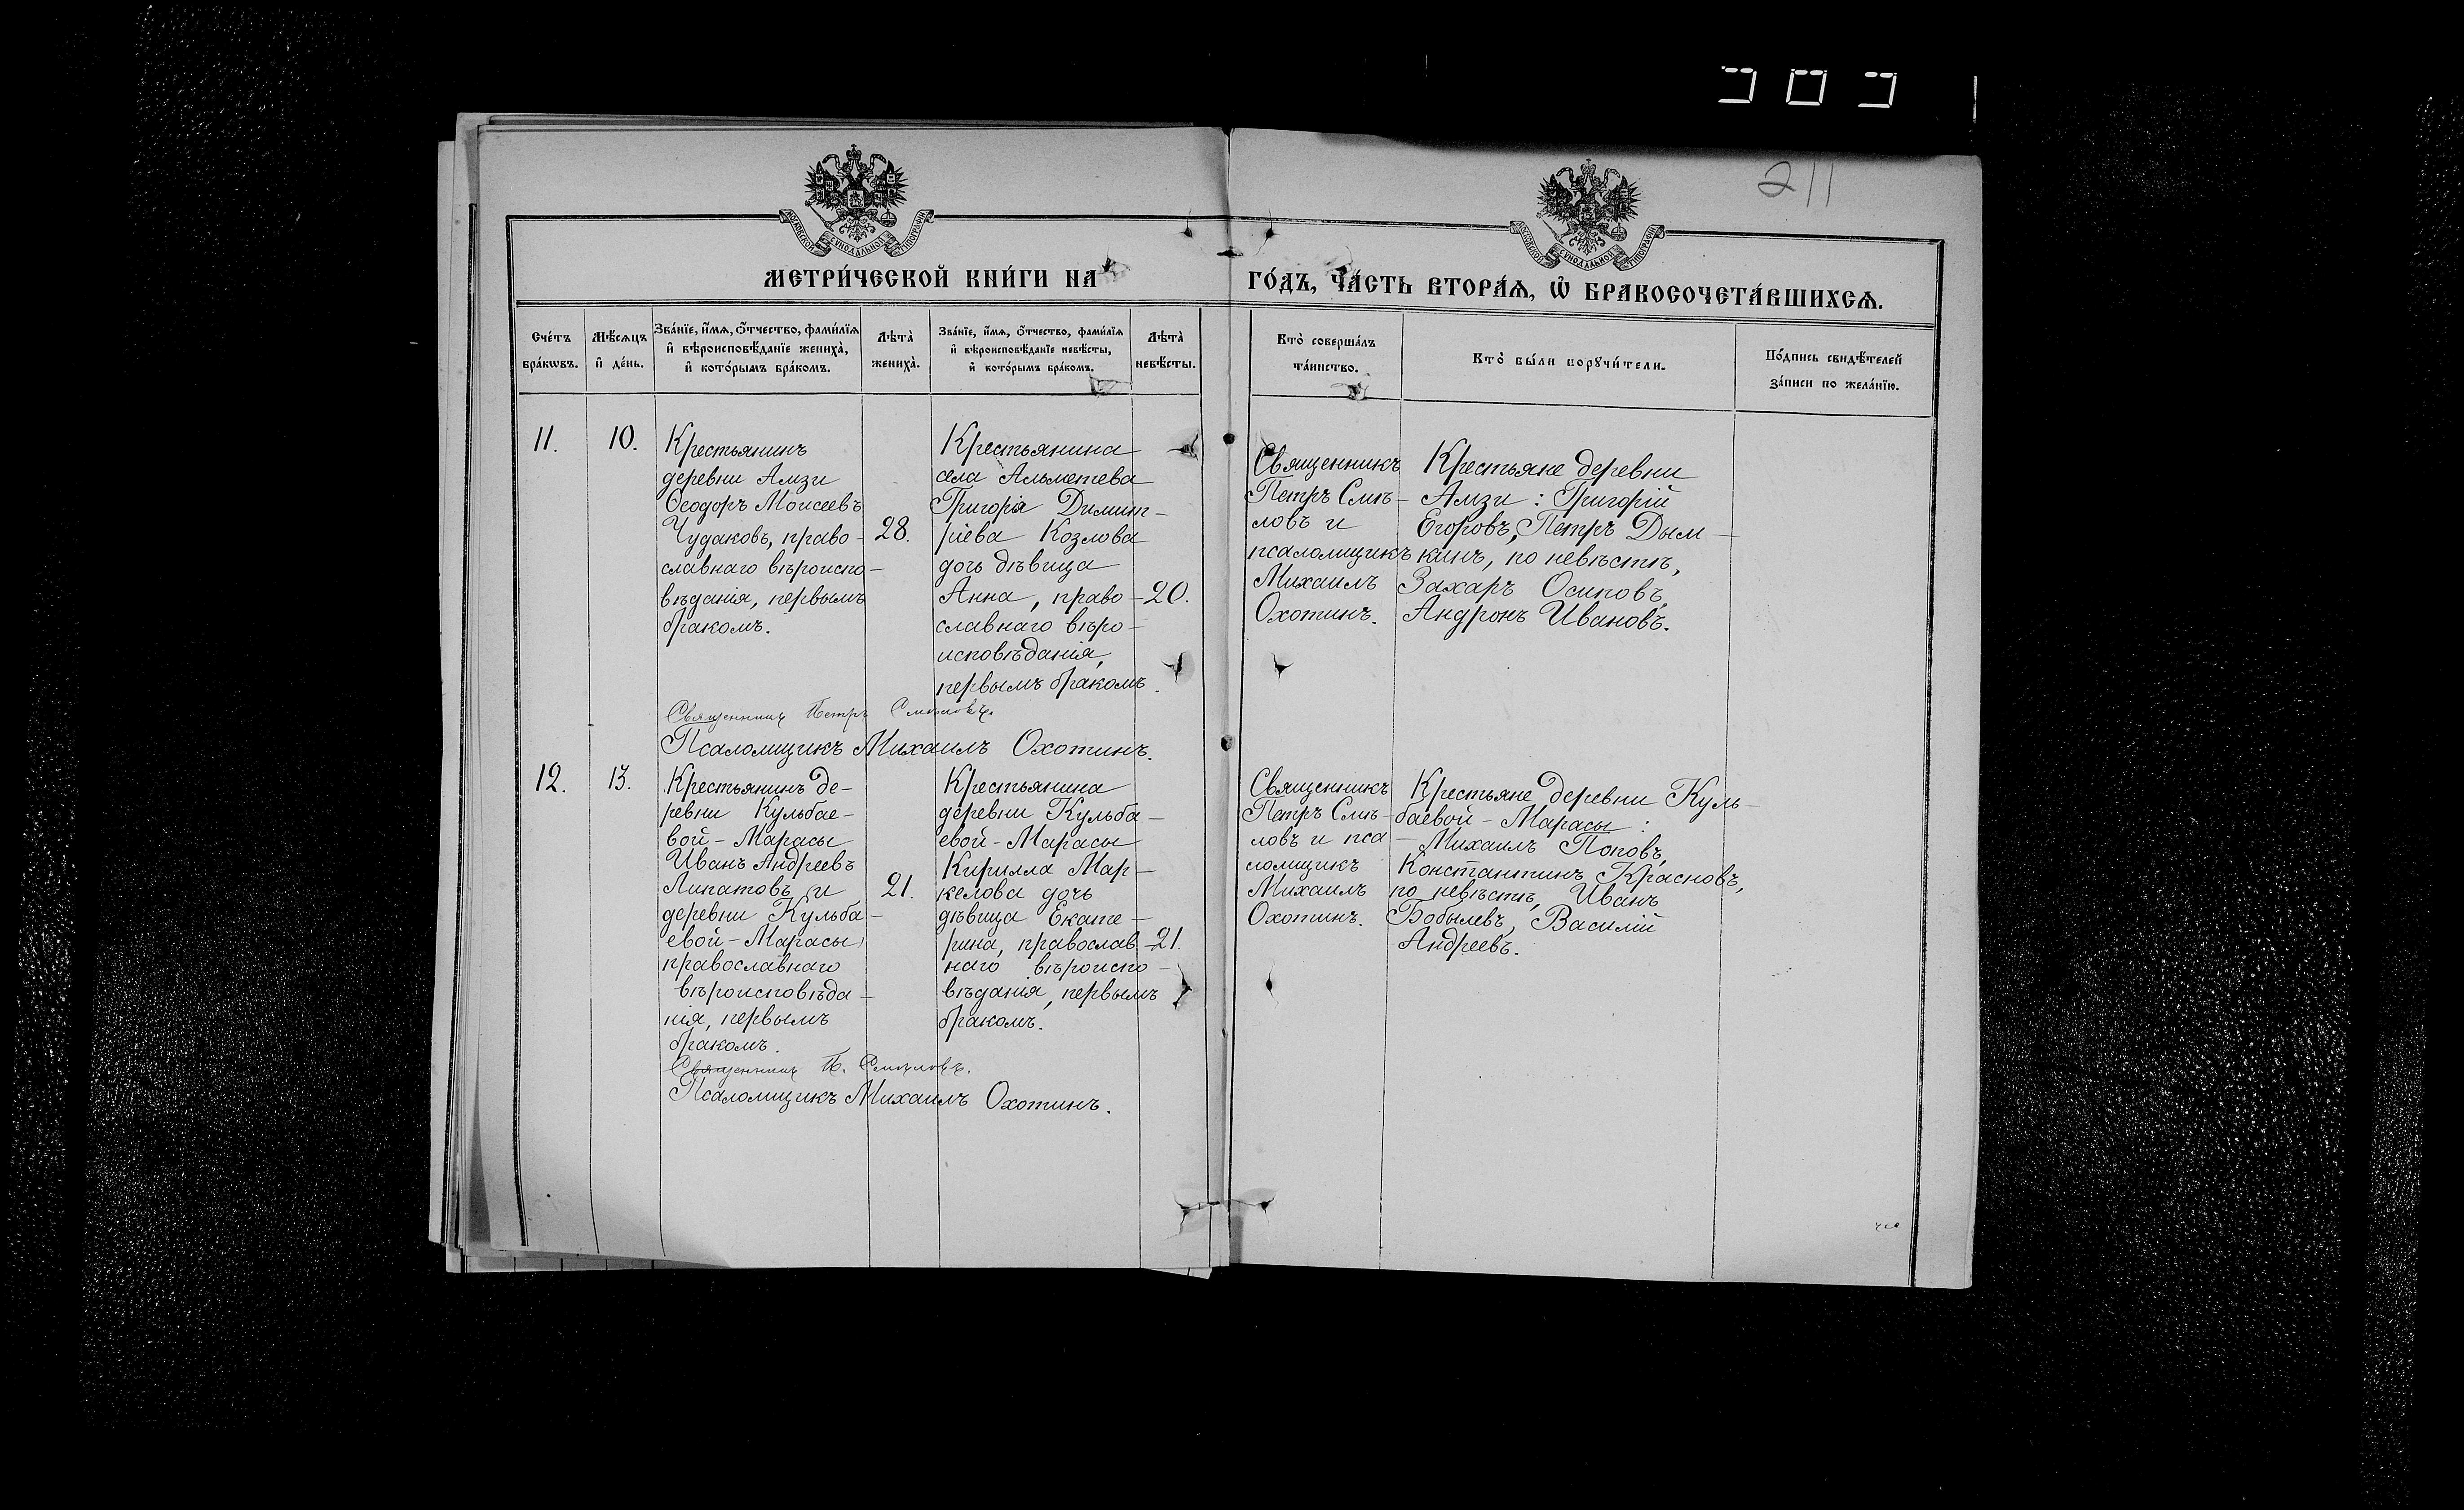 211
МОСКОВСКОЙ СѴНОДАЛЬНОЙ ТИПОГРАФІИ
МОСКОВСКОЙ СѴНОДАЛЬНОЙ ТИПОГРАФІИ
МЕТРИ́ЧЕСКОЙ КНИ́ГИ НА
ГО́ДЪ, ЧА́СТЬ ВТОРА́Ѧ, Ѽ БРАКОСОЧЕТА́ВШИХСѦ.
Сче́тъ
бра́кѡвъ.
Мѣ́сѧцъ
и҆ де́нь.
Зва́нїе, и҆́мѧ, ѻ҆́тчество, фами́лїѧ
и҆ вѣроисповѣ́данїе жениха̀,
и҆ кото́рымъ бра́комъ.
Лѣта̀
жениха̀.
Зва́нїе, и҆́мѧ, ѻ҆́тчество, фами́лїѧ
и҆ вѣроисповѣ́данїе невѣ́сты,
и҆ кото́рымъ бра́комъ.
Лѣта̀
невѣ́сты.
Кто̀ соверша́лъ
та́инство.
Кто̀ бы́ли порꙋчи́тели.
По́дпись свидѣ́телей
за́писи по жела́нїю.
11.
10.
Крестьянинъ
деревни Амзи
Ѳеодоръ Моисеевъ
Чудаковъ, право-
славнаго вѣроиспо-
вѣданія, первымъ
бракомъ.
28.
Крестьянина
села Альметева
Григорія Димит-
ріева Козлова
дочь дѣвица
Анна, право-
славнаго вѣро-
исповѣданія,
первымъ бракомъ.
20.
Священникъ
Петръ Смѣ-
ловъ и
псаломщикъ
Михаилъ
Охотинъ.
Крестьяне деревни
Амзи: Григорій
Егоровъ, Петръ Дым-
кинъ, по невѣстѣ,
Захаръ Осиповъ,
Андронъ Ивановъ.
Священникъ Петръ Смѣловъ.
Псаломщикъ Михаилъ Охотинъ.
12.
13.
Крестьянинъ де-
ревни Кульбае-
вой-Марасы
Иванъ Андреевъ
Липатовъ, и
деревни Кульба-
евой-Марасы,
православнаго
вѣроисповѣда-
нія, первымъ
бракомъ.
21.
Крестьянина
деревни Кульба-
евой-Марасы
Кирилла Мар-
келова дочь
дѣвица Екате-
рина, православ-
наго вѣроиспо-
вѣданія, первымъ
бракомъ.
21.
Священникъ
Петръ Смѣ-
ловъ и пса-
ломщикъ
Михаилъ
Охотинъ.
Крестьяне деревни Куль-
баевой-Марасы:
Михаилъ Поповъ,
Константинъ Красновъ,
по невѣстѣ, Иванъ
Бобылевъ, Василій
Андреевъ.
Священникъ П. Смѣловъ.
Псаломщикъ Михаилъ Охотинъ.